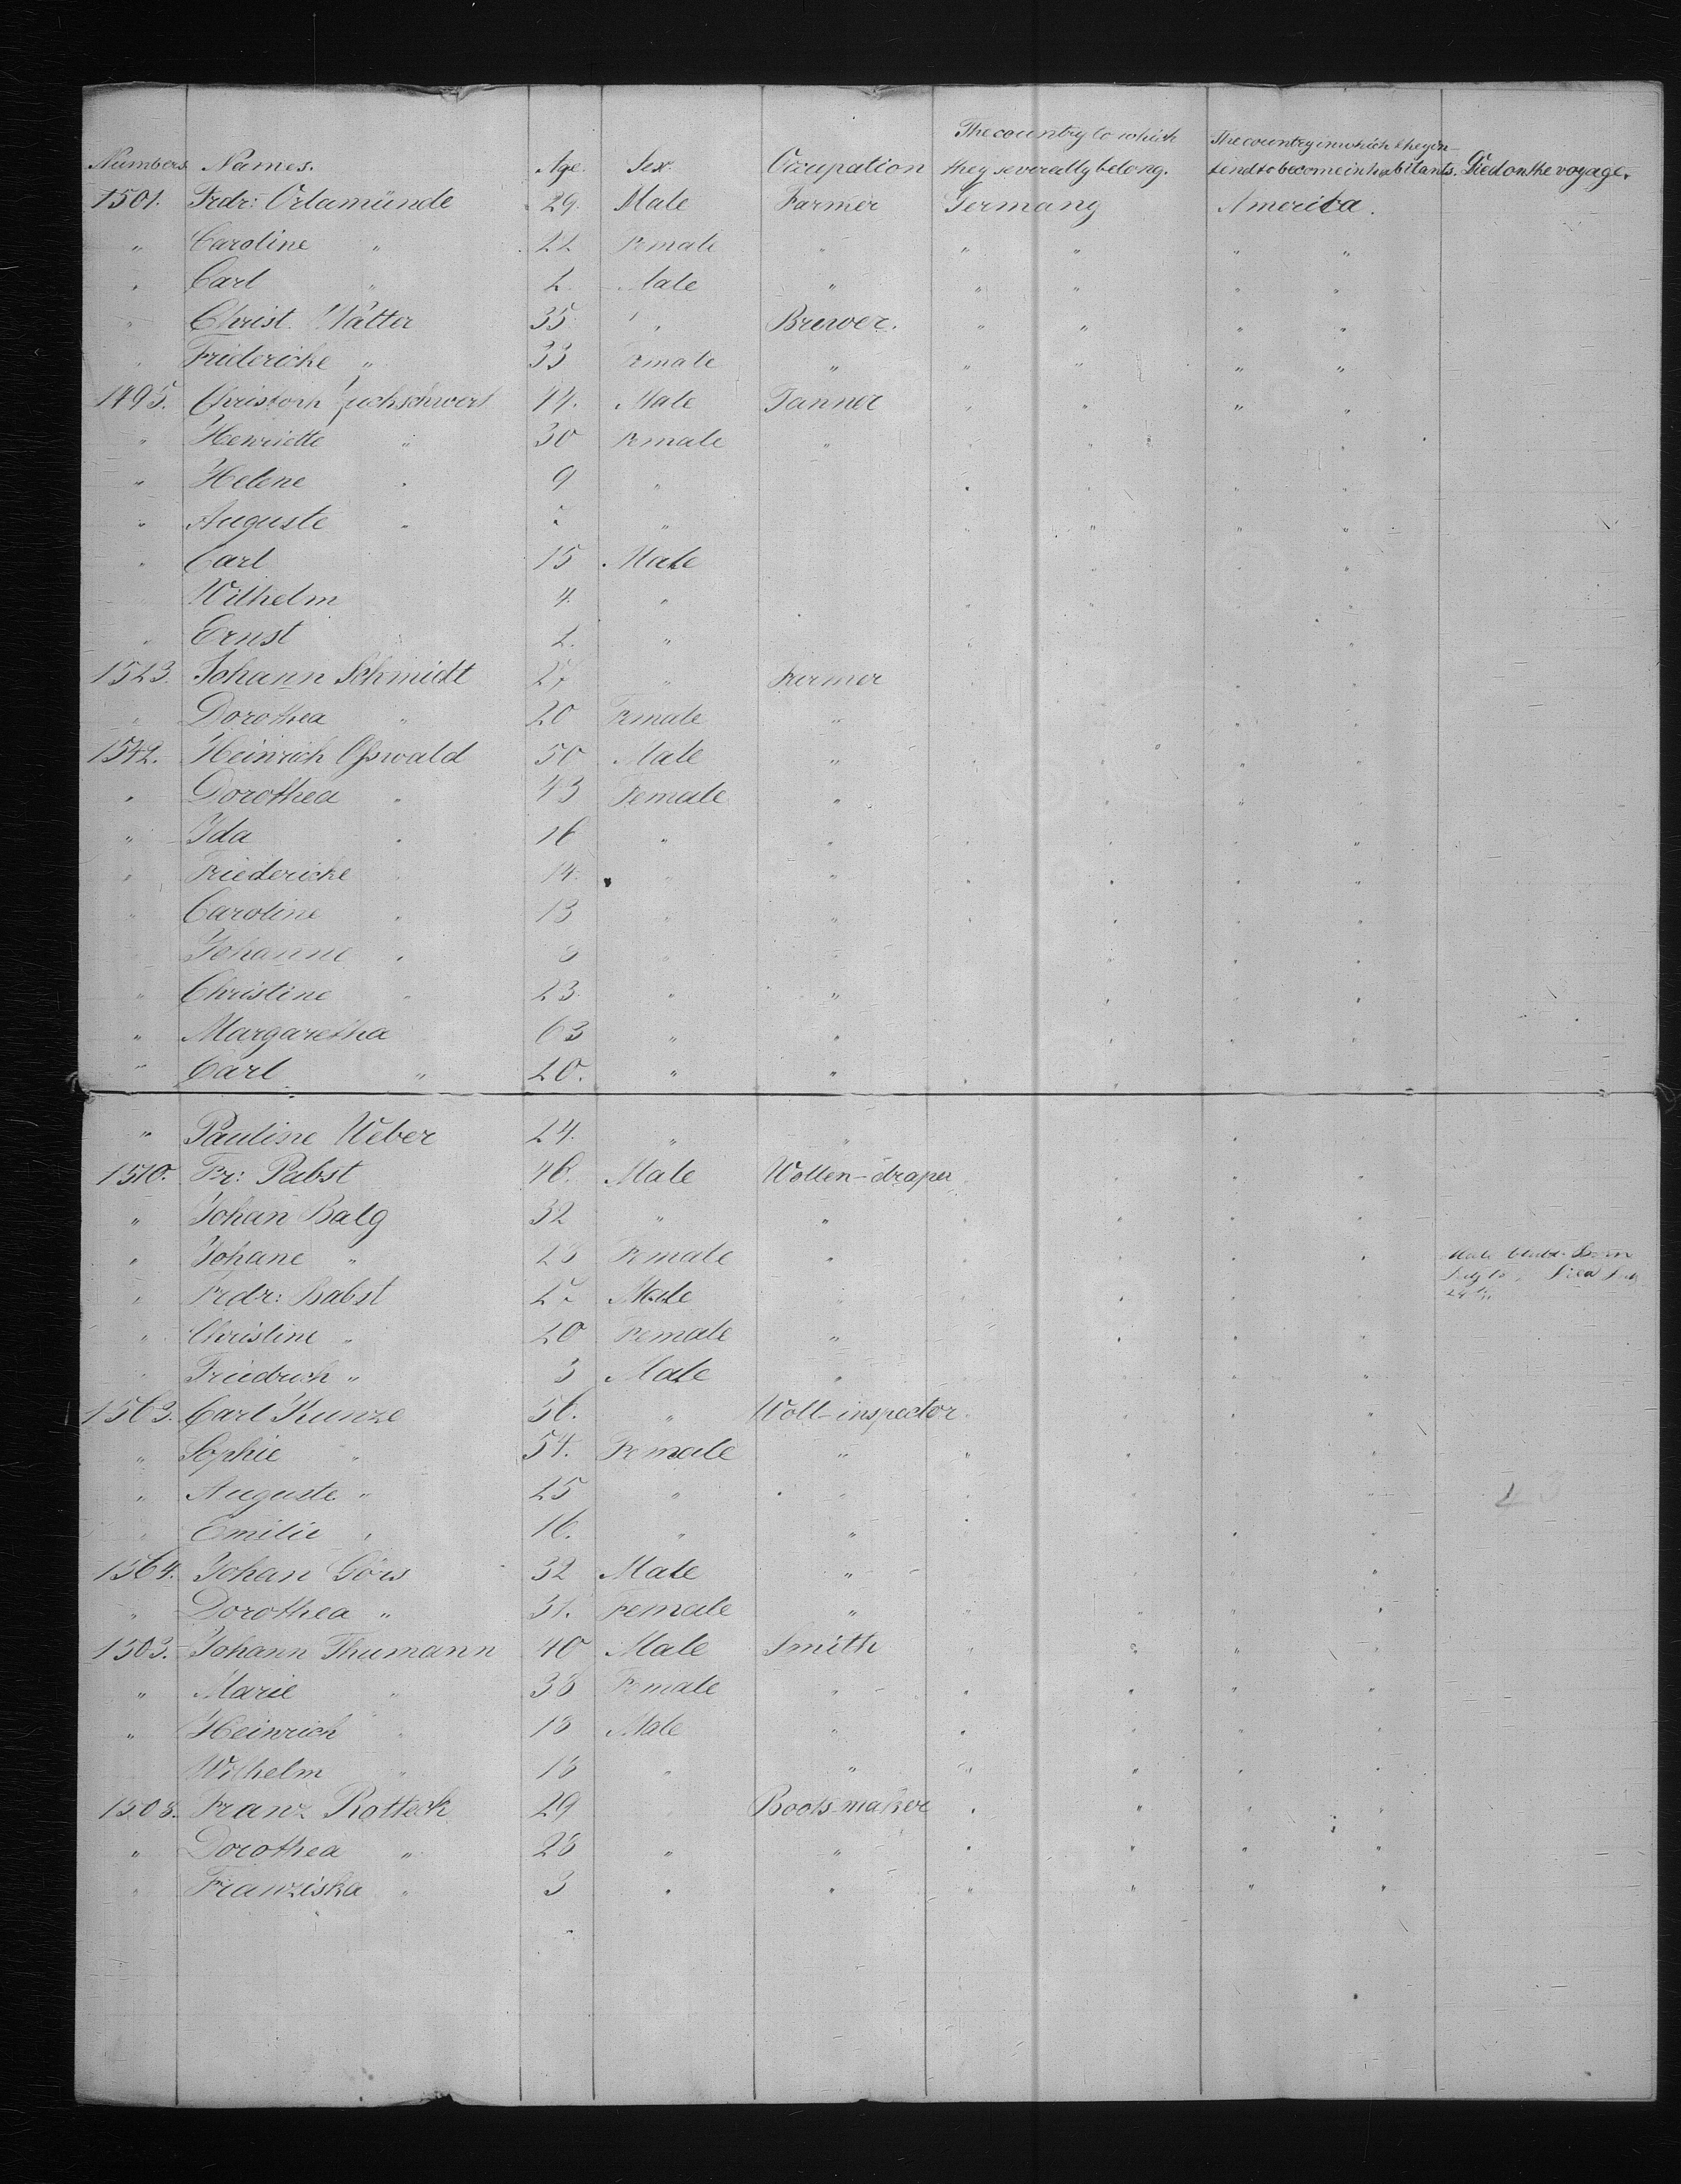 The country to which The country in which they in-
Numbers Names. Age. Sex. Occupation they severally belong. tend to become inhabitants. Died on the voyage.
1501. Frdr: Orlamünde 29. Male Farmer Germany America.
" Caroline " 22 Female " " " " "
" Carl " 2. Male " " " " "
" Christ. Walter 35 " Brewer. " " " "
" Friedericke " 33 Female " " " " "
1495. Christoph 44. Male Tanner " " " "
" Henriette " 30 Female " " " " "
" Helene " 9 " " " " "
" Auguste " " " " " "
" Carl 15 Male " "
Wilhelm 4. " " " " "
" Ernst 2. " " "
1523. Johann Schmidt 27 " Farmer " " "
" Dorothea " 20 Female " " " "
1542. Heinrich Oßwald 50 Male " " " " "
" Dorothea " 43 Female " " " "
" Ida " 16 " " " " " "
" Friedericke " 14. " " " " " "
" Caroline " 13 " " " " " "
" Johanne " " " " " "
" Christine " 23. " " " " "
" Margaretha 63 " " " " "
" Carl " 20. " " " " " "
" Pauline Weber 24. " " "
1510. Fr: Pabst 46. Male Wollen-draper " " " "
" Johan Balg 32 " " " " " "
" Johane " 28 Female " " " " Male Born
" Frdr: Babst Male " " " " 24th
" Christine " 20 Female " " " "
" Friedrich " 3 Male " " "
1563. Carl Kunze 56. " Woll-inspector " " "
" Sophie " 54. Female " " " " "
" Auguste " 25 " " " " " "
" Emilie " 16. " " " " " "
1564. Johan Görs 32 Male " " " "
" Dorothea " 31. Female " " " " "
1503. Johann Thumann 40 Male Smith " " " "
" Marie " 38 Female " " " " "
" Heinrich " 18 Male " " " " "
Wilhelm " 18 " " " " " "
1508. Franz Rotteck 29 " Boots-maker " " " "
" Dorothea " 28 " " " " " "
" Franziska " 3 " " " " " "